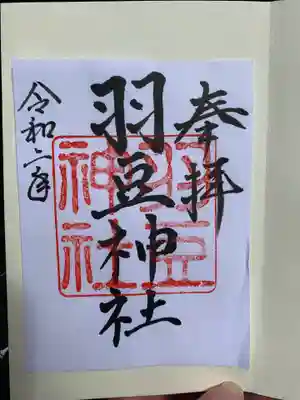 奉拝
羽豆神社
羽豆
神社
令和六年